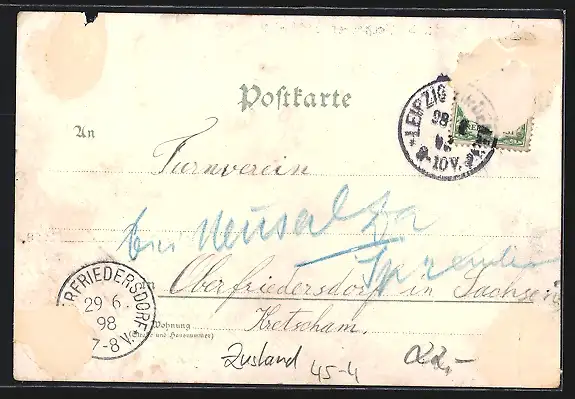 Postkarte
LEIPZIG
98
9-10V.
An
Turnverein
bei Neusalza
Spremberg
in Oberfriedersdorf in Sachsen
RFRIEDERSDORF
29 6.
98
7-8 V.
Wohnung
(Straße und Hausnummer)
Kretscham.
Zustand
45-4